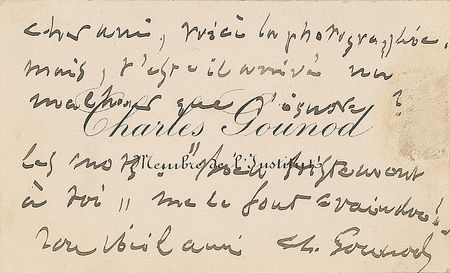 cher ami, voici la photographie.
mais, t'est-il arrivé un
malheur que j'ignore ?
Charles Gounod
Membre de l'Institut
les mots "bien tristement
à toi" me le font craindre!
ton vieil ami Ch. Gounod